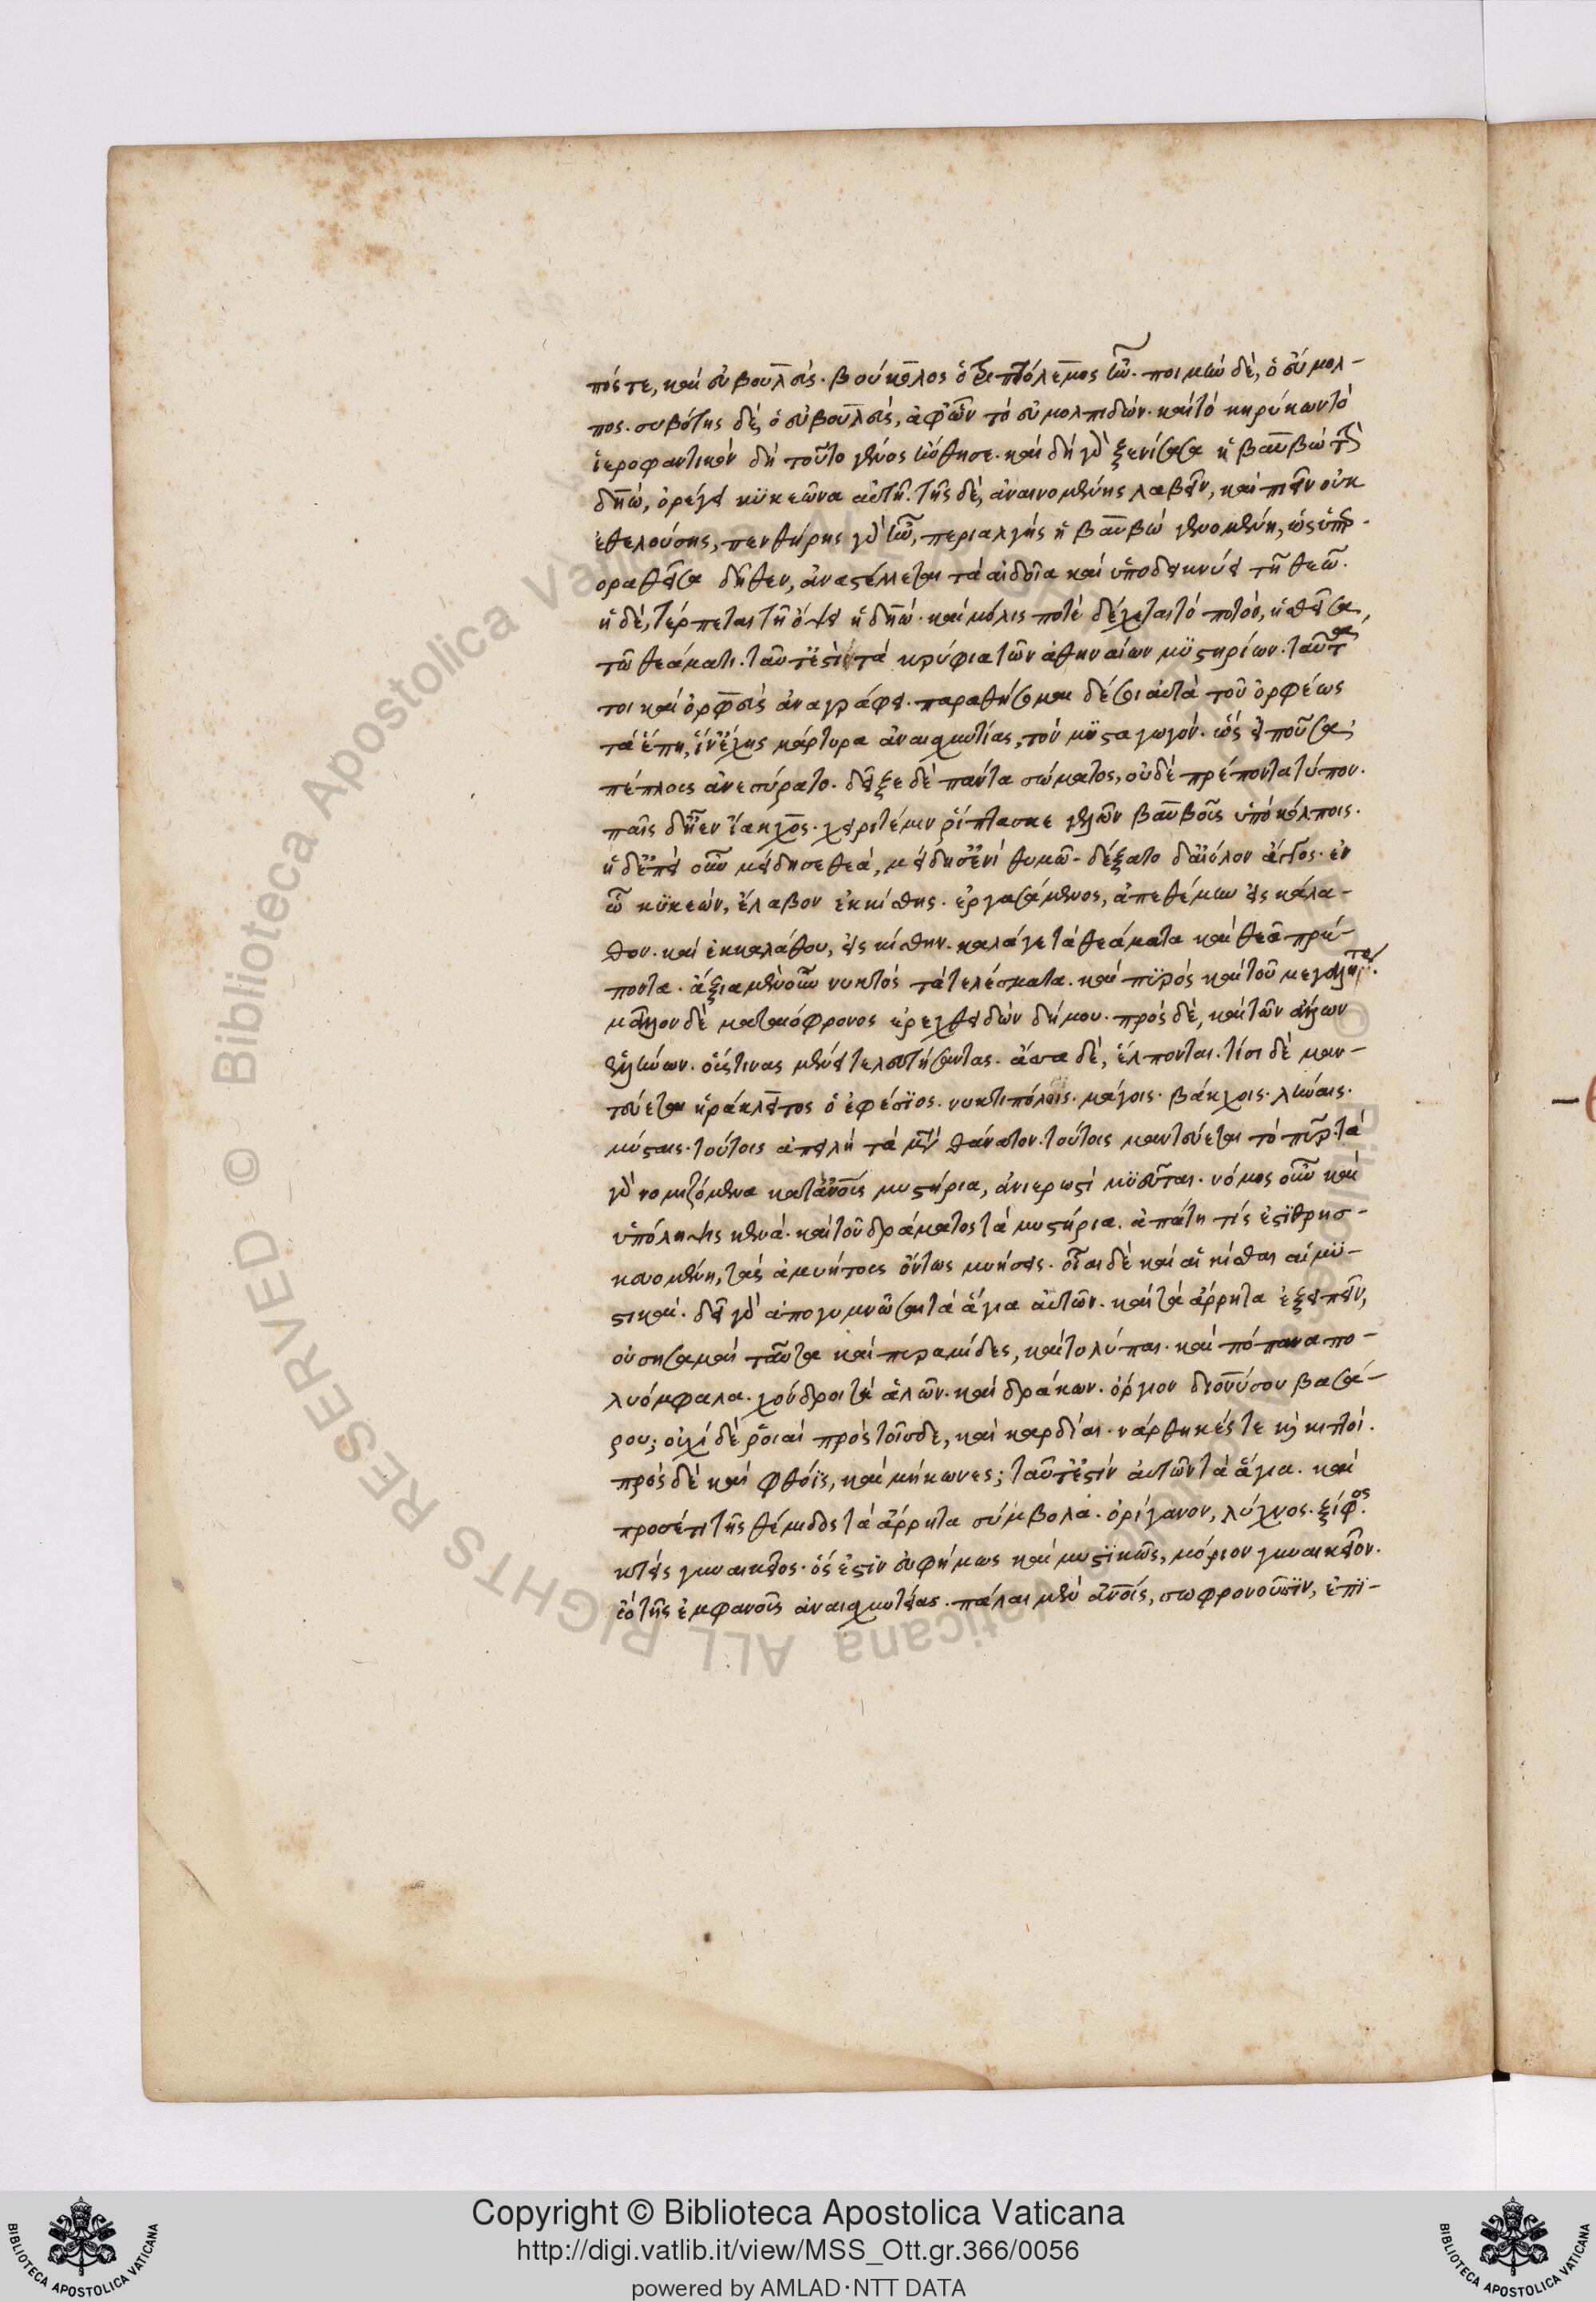 πός τε, καὶ εὐβουλεύς. βούκολος ὁ τριπτόλεμος ἦν. ποιμὴν δὲ, ὁ εὔμολ-
πος. συβότης δὲ, ὁ εὐβουλεύς, ἀφ' ὧν τὸ εὐμολπιδῶν. καὶ τὸ κηρύκων τὸ
ἱεροφαντικὸν δὴ τοῦτο γένος ἤνθησε. καὶ δὴ γὰρ ξενίσασα ἡ βαυβὼ τὴν
δηὼ, ὀρέγει κυκεῶνα αὐτῇ. τῆς δὲ, ἀναινομένης λαβεῖν, καὶ πιεῖν οὐκ
ἐθελούσης, πενθήρης γὰρ ἦν, περιαλγὴς ἡ βαυβὼ γενομένη, ὡς ὑπερ-
οραθεῖσα δῆθεν, ἀναστέλλεται τὰ αἰδοῖα καὶ ὑποδεικνύει τῇ θεῷ.
ἡ δὲ, τέρπεται τῇ ὄψει ἡ δηώ. καὶ μόλις ποτὲ δέχεται τὸ ποτὸν, ἡσθεῖσα,
τῷ θεάματι. ταῦτ' ἐστὶ τὰ κρύφια τῶν ἀθηναίων μυστηρίων. ταῦτα
τοι καὶ ὀρφεὺς ἀναγράφει. παραθήσομαι δέ σοι αὐτὰ τοῦ ὀρφέως
τὰ ἔπη, ἵν' ἔχῃς μάρτυρα ἀναισχυντίας, τὸν μυσταγωγόν. ὡς εἰποῦσα,
πέπλοις ἀνεσύρατο. δεῖξε δὲ πάντα σώματος, οὐδὲ πρέποντα τύπον.
παῖς δ' ἦεν ἴακχος. χειρί τέ μιν ῥίπτασκε γελῶν βαυβοῦς ὑπὸ κόλποις.
ἡ δ' ἐπεὶ οὖν μείδησε θεὰ, μείδησ' ἐνὶ θυμῷ. δέξατο δ' αἰόλον ἄγγος. ἐν
ᾧ κυκεών, ἔλαβον ἐκ κίστης. ἐργασάμενος, ἀπεθέμην εἰς κάλα-
θον. καὶ ἐκ καλάθου, εἰς κίστην. καλά γε τὰ θεάματα καὶ θεᾷ πρέ-
ποντα. ἄξια μὲν οὖν νυκτὸς τὰ τελέσματα. καὶ πυρὸς καὶ τοῦ μεγαλήτορ.
μᾶλλον δὲ ματαιόφρονος ἐρεχθειδῶν δήμου. πρὸς δὲ, καὶ τῶν ἄλλων
ἑλλήνων. οὕστινας μένει τελευτήσαντας. ἅσσα δὲ, ἔλπονται. τίσι δὲ μαν-
τεύεται ἡράκλειτος ὁ ἐφέσιος. νυκτιπόλοις. μάγοις. βάκχοις. λήναις.
μύσταις. τούτοις ἀπειλῆ τὰ μετὰ θάνατον. τούτοις μαντεύεται τὸ πῦρ. τὰ
γὰρ νομιζόμενα κατ' ἀνθρώπους μυστήρια, ἀνιερωστὶ μυεῦνται. νόμος οὖν καὶ
ὑπόληψις κενά. καὶ τοῦ δράματος τὰ μυστήρια. ἀπάτη τίς ἐστι θρησ-
κευομένη, τὰς ἀμυήτους ὄντως μυήσεις. οἷαι δὲ καὶ αἱ κίσται αἱ μυ-
στικαί. δεῖ γὰρ ἀπογυμνῶσαι τὰ ἅγια αὐτῶν. καὶ τὰ ἄρρητα ἐξειπεῖν,
οὐ σησαμαὶ ταῦτα καὶ πυραμίδες, καὶ τολύπαι. καὶ πόπανα πο-
λυόμφαλα. χόνδροι τε ἁλῶν. καὶ δράκων. ὄργιον διονύσου βασά-
ρου; οὐχὶ δὲ ῥοιαὶ πρὸς τοῖσδε, καὶ καρδίαι. νάρθηκές τε καὶ κιττοί.
πρὸς δὲ καὶ φθόϊς, καὶ μήκωνες; ταῦτ' ἐστὶν αὐτῶν τὰ ἅγια. καὶ
προσέτι τῆς θέμιδος τὰ ἄρρητα σύμβολα. ὀρίγανον, λύχνος. ξίφος.
κτεὶς γυναικεῖος. ὅς ἐστιν εὐφήμως καὶ μυστικῶς, μόριον γυναικεῖον.
ὢ τῆς ἐμφανοῦς ἀναισχυντίας. πάλαι μὲν ἀνθρώποις, σωφρονοῦσιν, ἐπι-
Copyright © Biblioteca Apostolica Vaticana
http://digi.vatlib.it/view/MSS_Ott.gr.366/0056
powered by AMLAD·NTT DATA
BIBLIOTECA APOSTOLICA VATICANA
BIBLIOTECA APOSTOLICA VATICANA
© Biblioteca Apostolica Vaticana ALL RIGHTS RESERVED